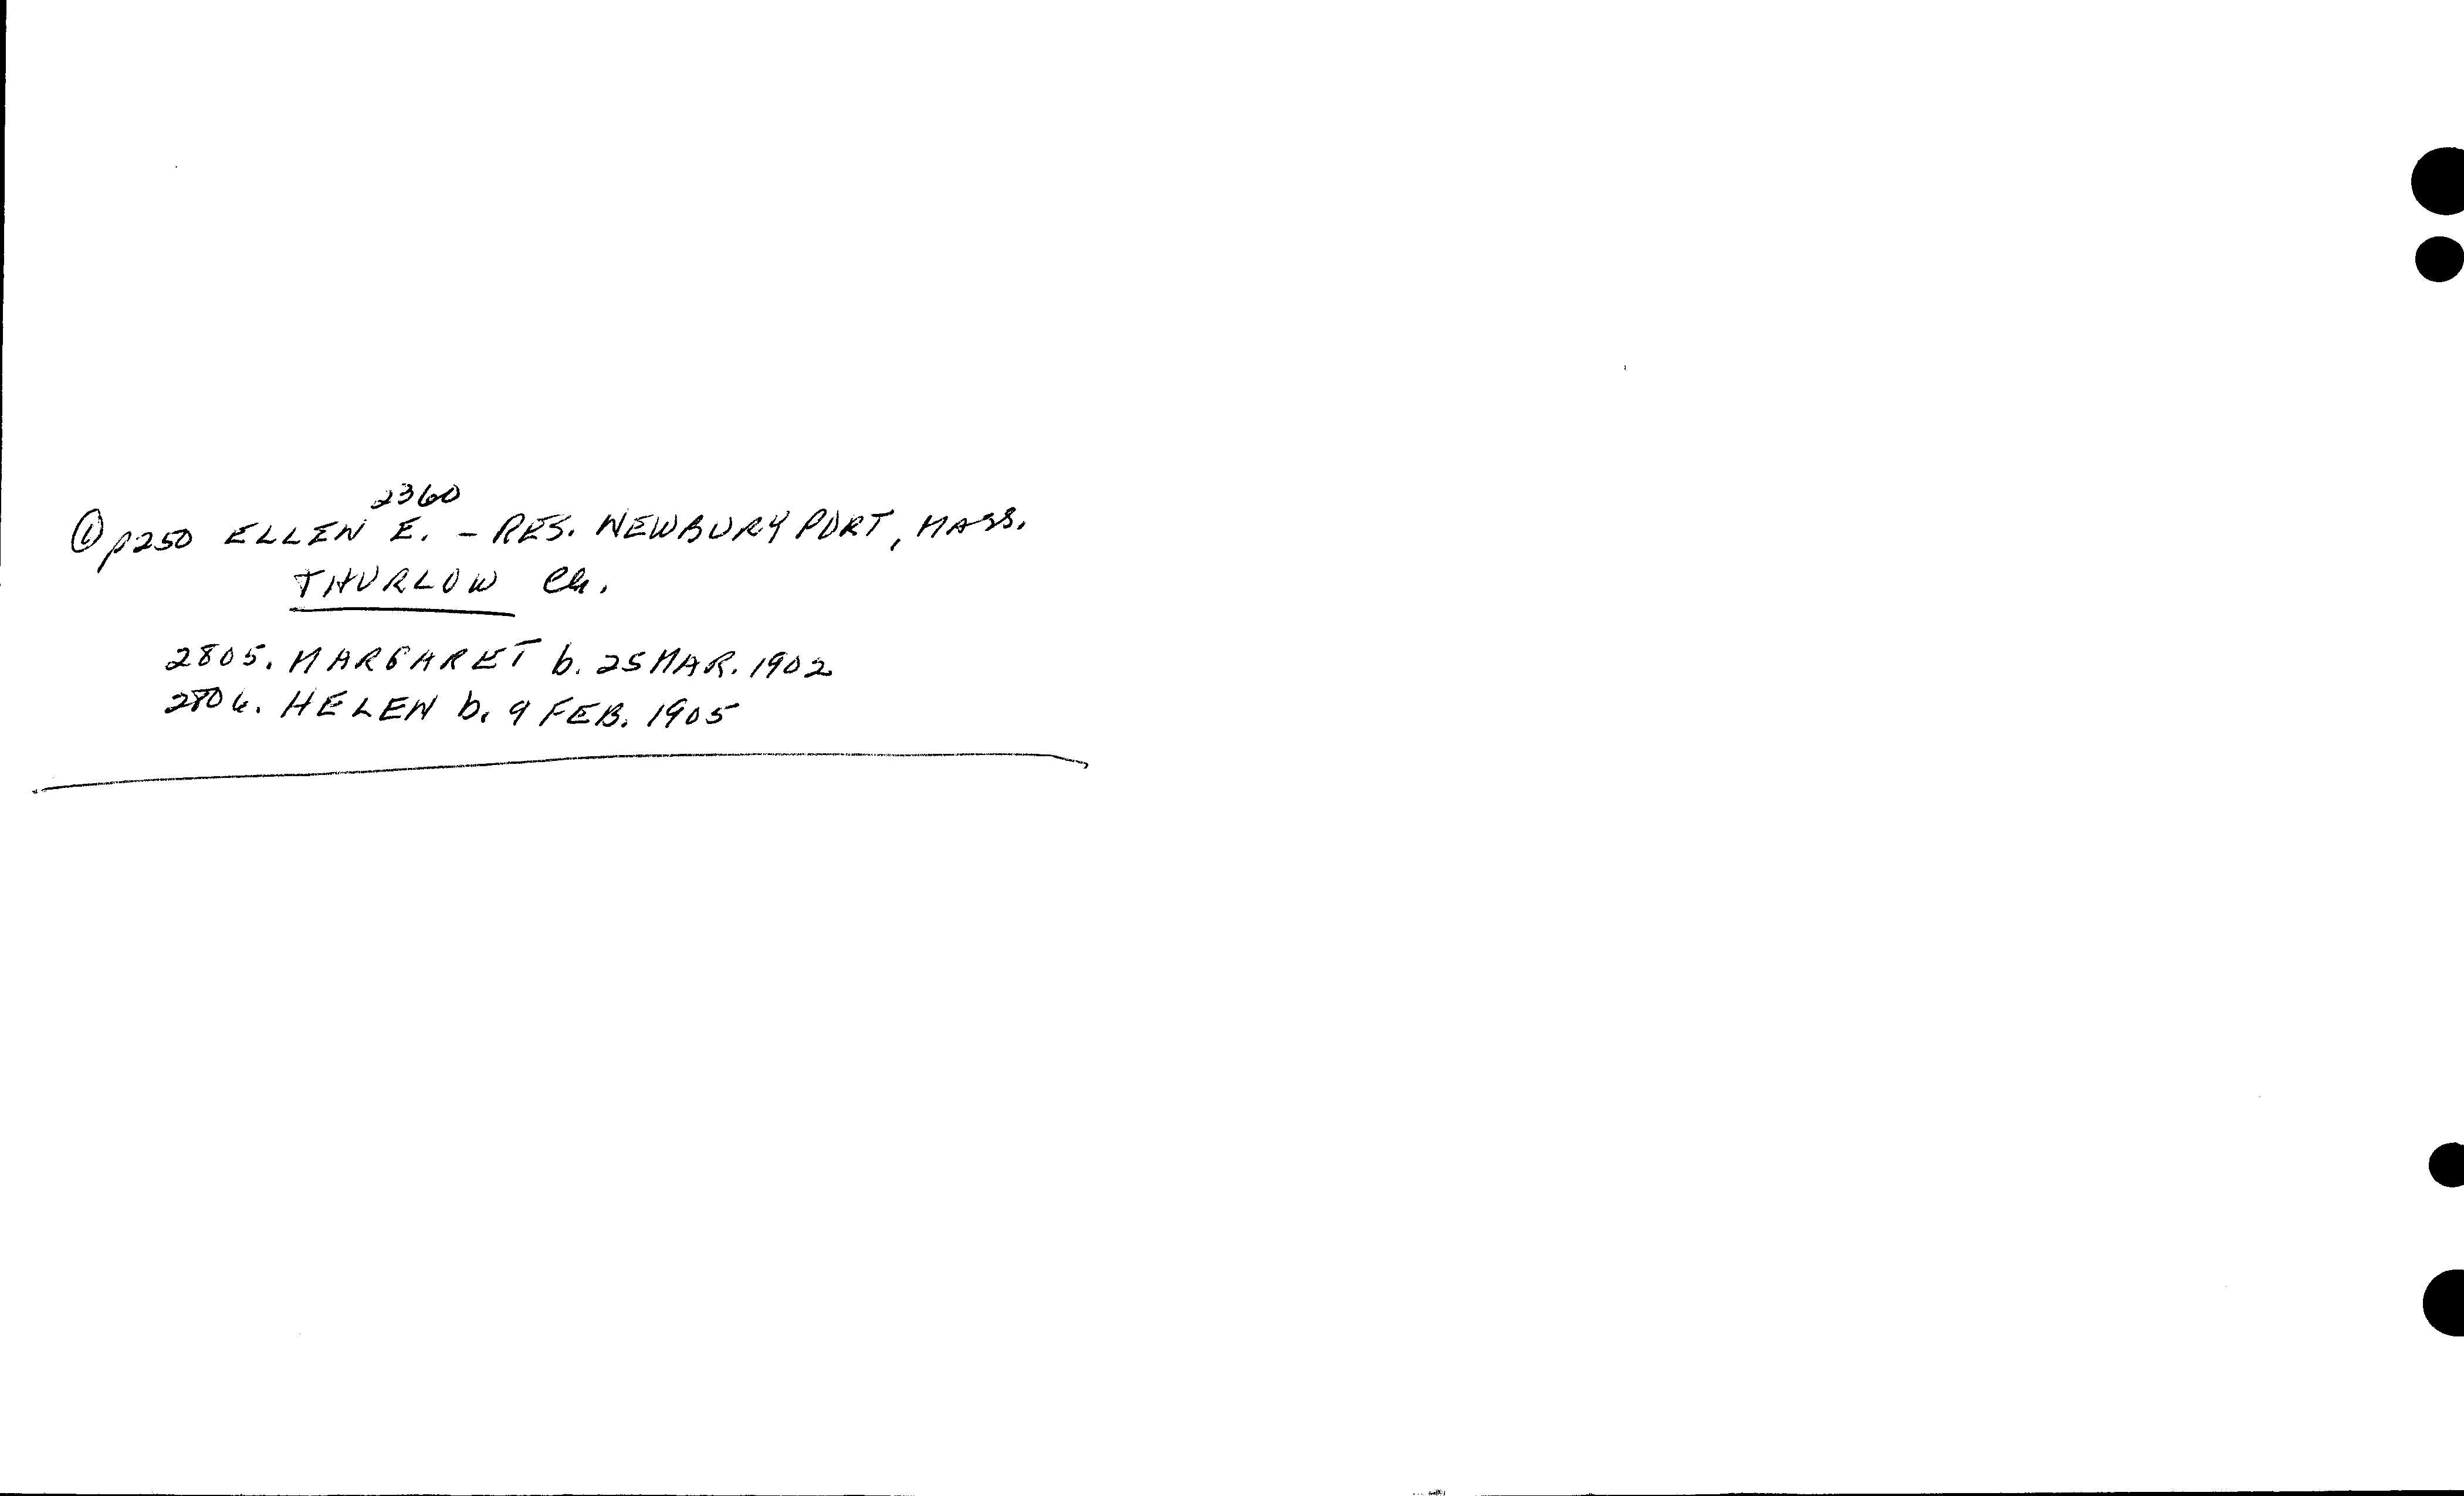 2360
① p250 ELLEN E. - RES. NEWBURYPORT, MASS.
THURLOW Ch.
2805. MARGARET b. 25 MAR. 1902
2806. HELEN b. 9 FEB. 1905